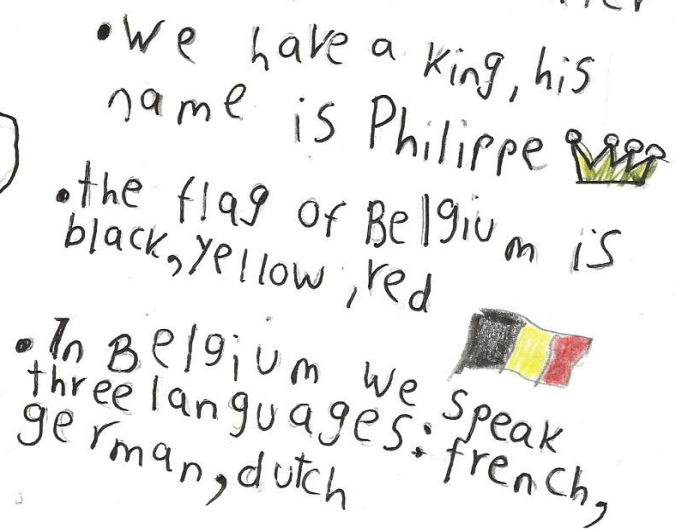 •We have a King, his
name is Philippe
•the flag of Belgium is
black, yellow, red
•In Belgium we speak
three languages: french,
german, dutch